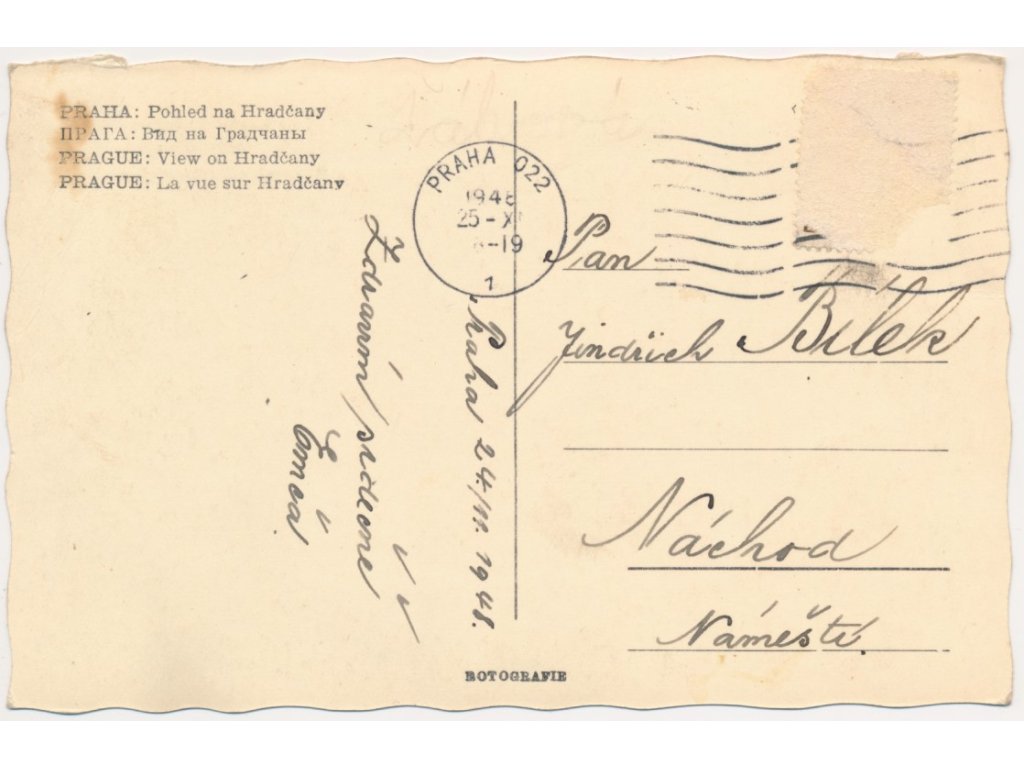 PRAHA: Pohled na Hradčany
ПРАГА: Вид на Градчаны
PRAGUE: View on Hradčany
PRAGUE: La vue sur Hradčany
PRAHA 022
1948
25-XI
-19
1
Praha 24./XI. 1948.
Zdravím srdečně
Emča
Pan
Jindřich Bílek
Náchod
Náměstí.
ROTOGRAFIE